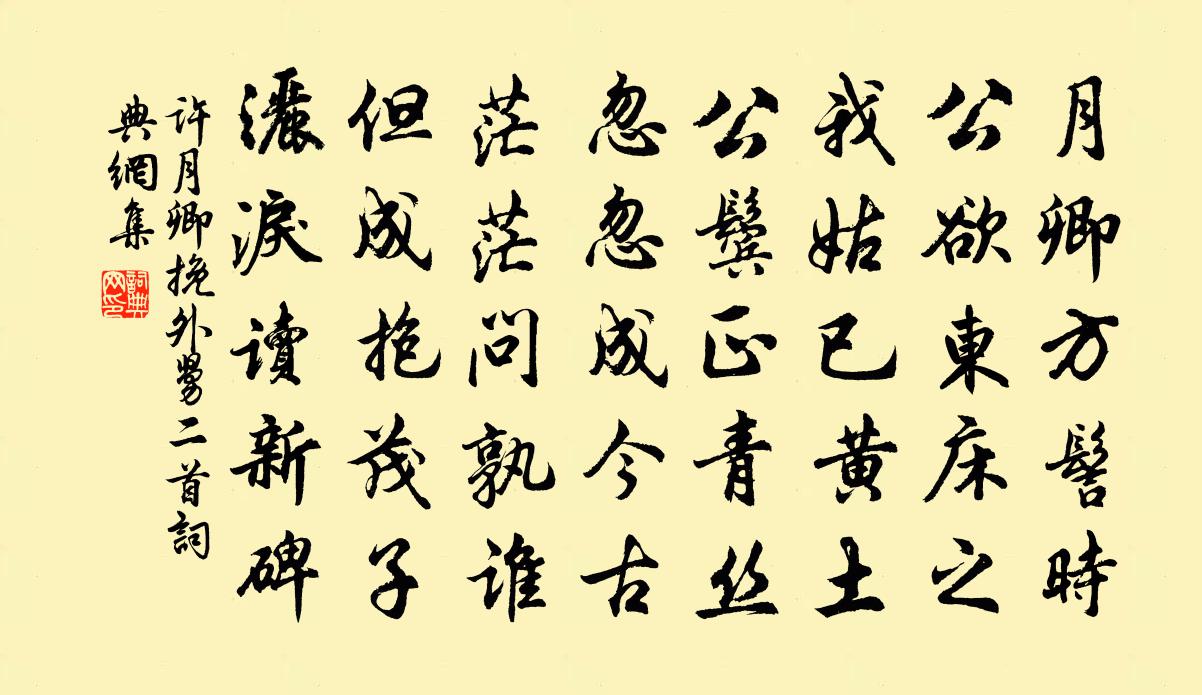 月卿方髻時
公欲東床之
我姑已黄土
公鬢正青丝
忽忽成今古
茫茫問孰誰
但成抱茂子
灑淚讀新碑
許月卿挽外舅二首詞
典網集
詞典
网印